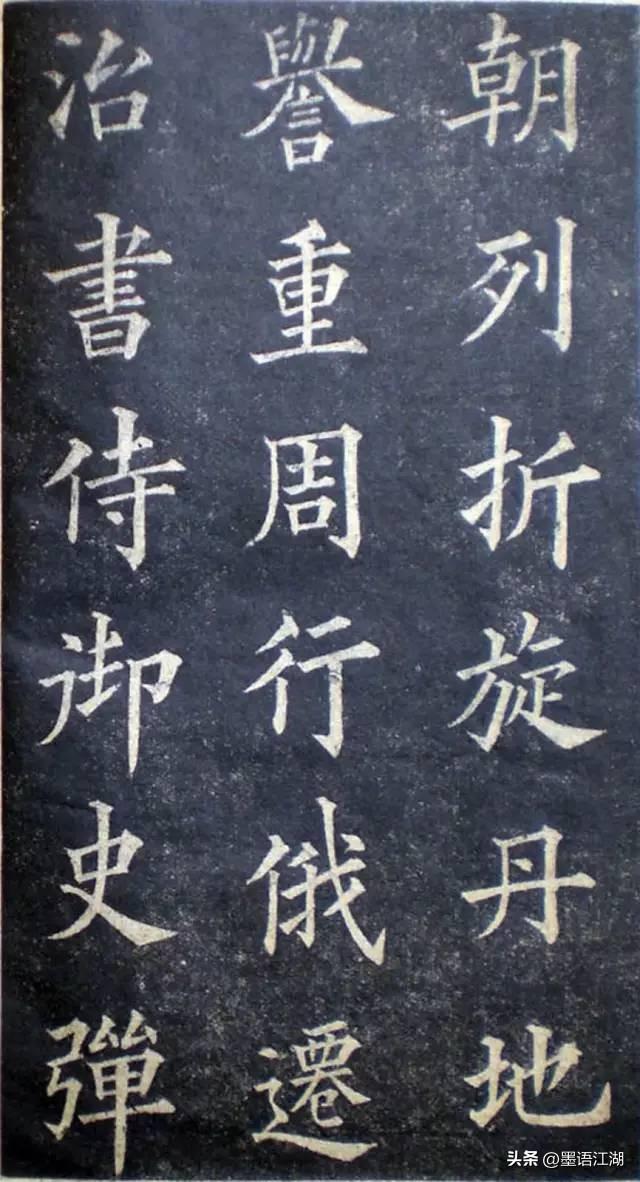 朝列折旋丹地
譽重周行俄遷
治書侍御史彈
头条 @墨语江湖